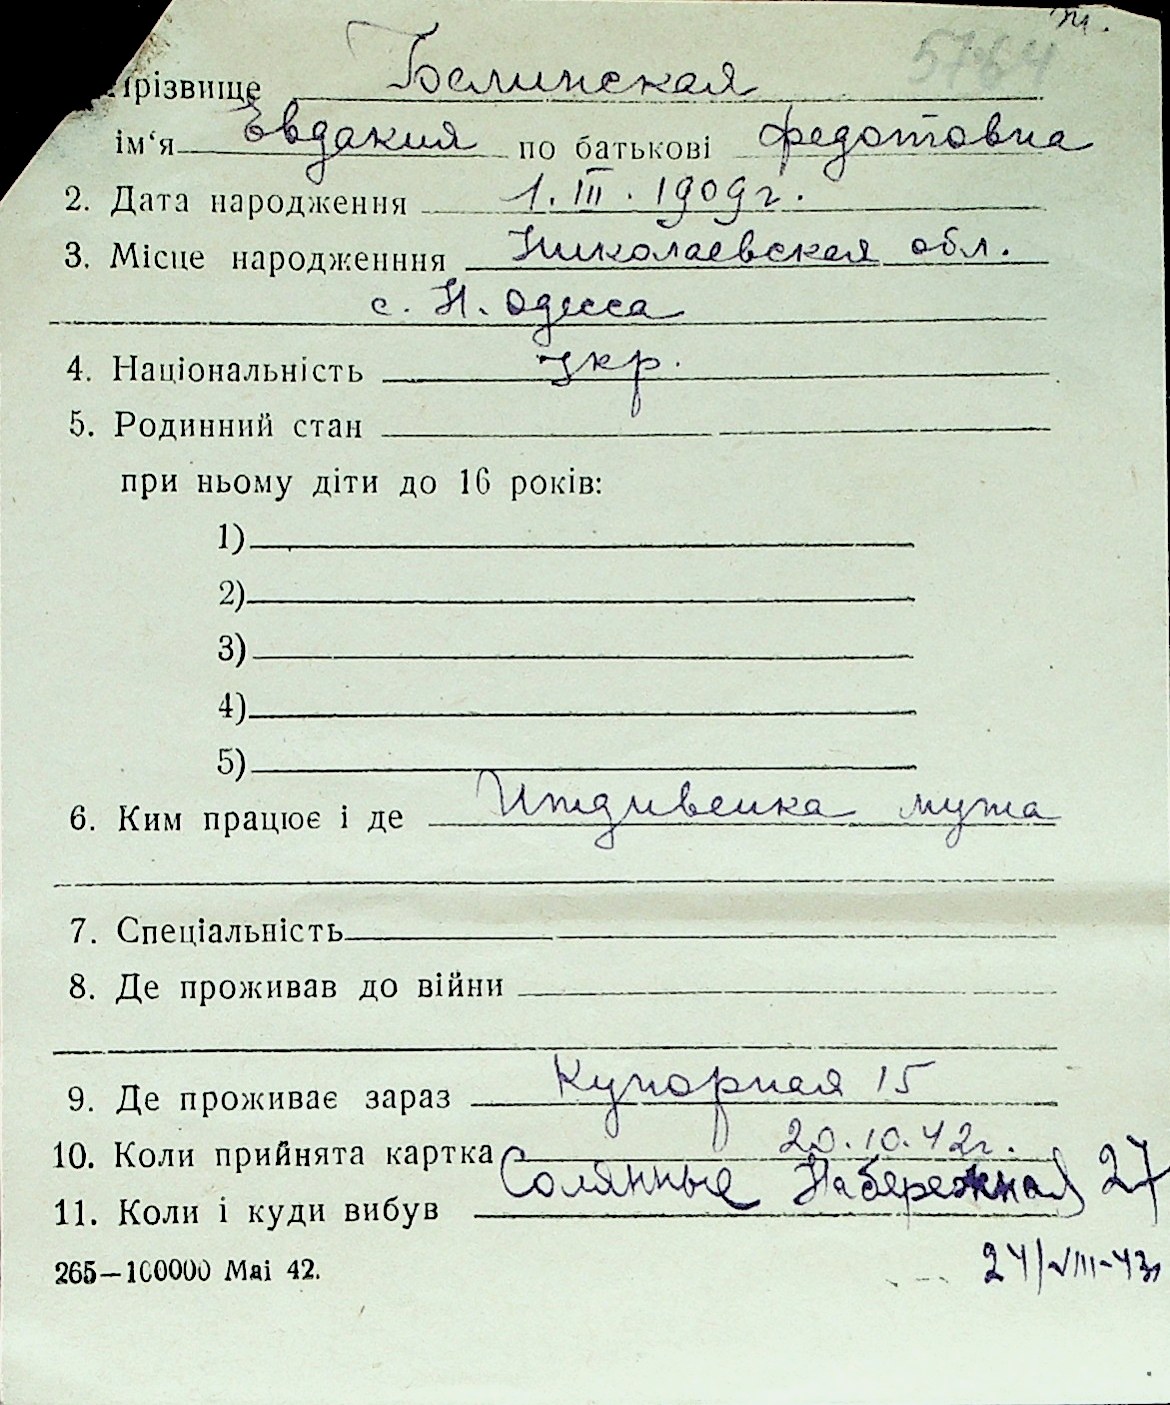 5764
Прізвище Белинская
ім‘я Евдакия по батькові Федотовна
2. Дата народження 1. III. 1909 г.
3. Місце народженння Николаевская обл.
с. Н. Одесса
4. Національність Укр.
5. Родинний стан
при ньому діти до 16 років:
1)
2)
3)
4)
5)
6. Ким працює і де Иждивенка мужа
7. Спеціальність
8. Де проживав до війни
9. Де проживає зараз Купорная 15
10. Коли прийнята картка 20.10.42г.
Солянные Набережная 27
11. Коли і куди вибув
265—100000 Маі 42.
24/VIII-43